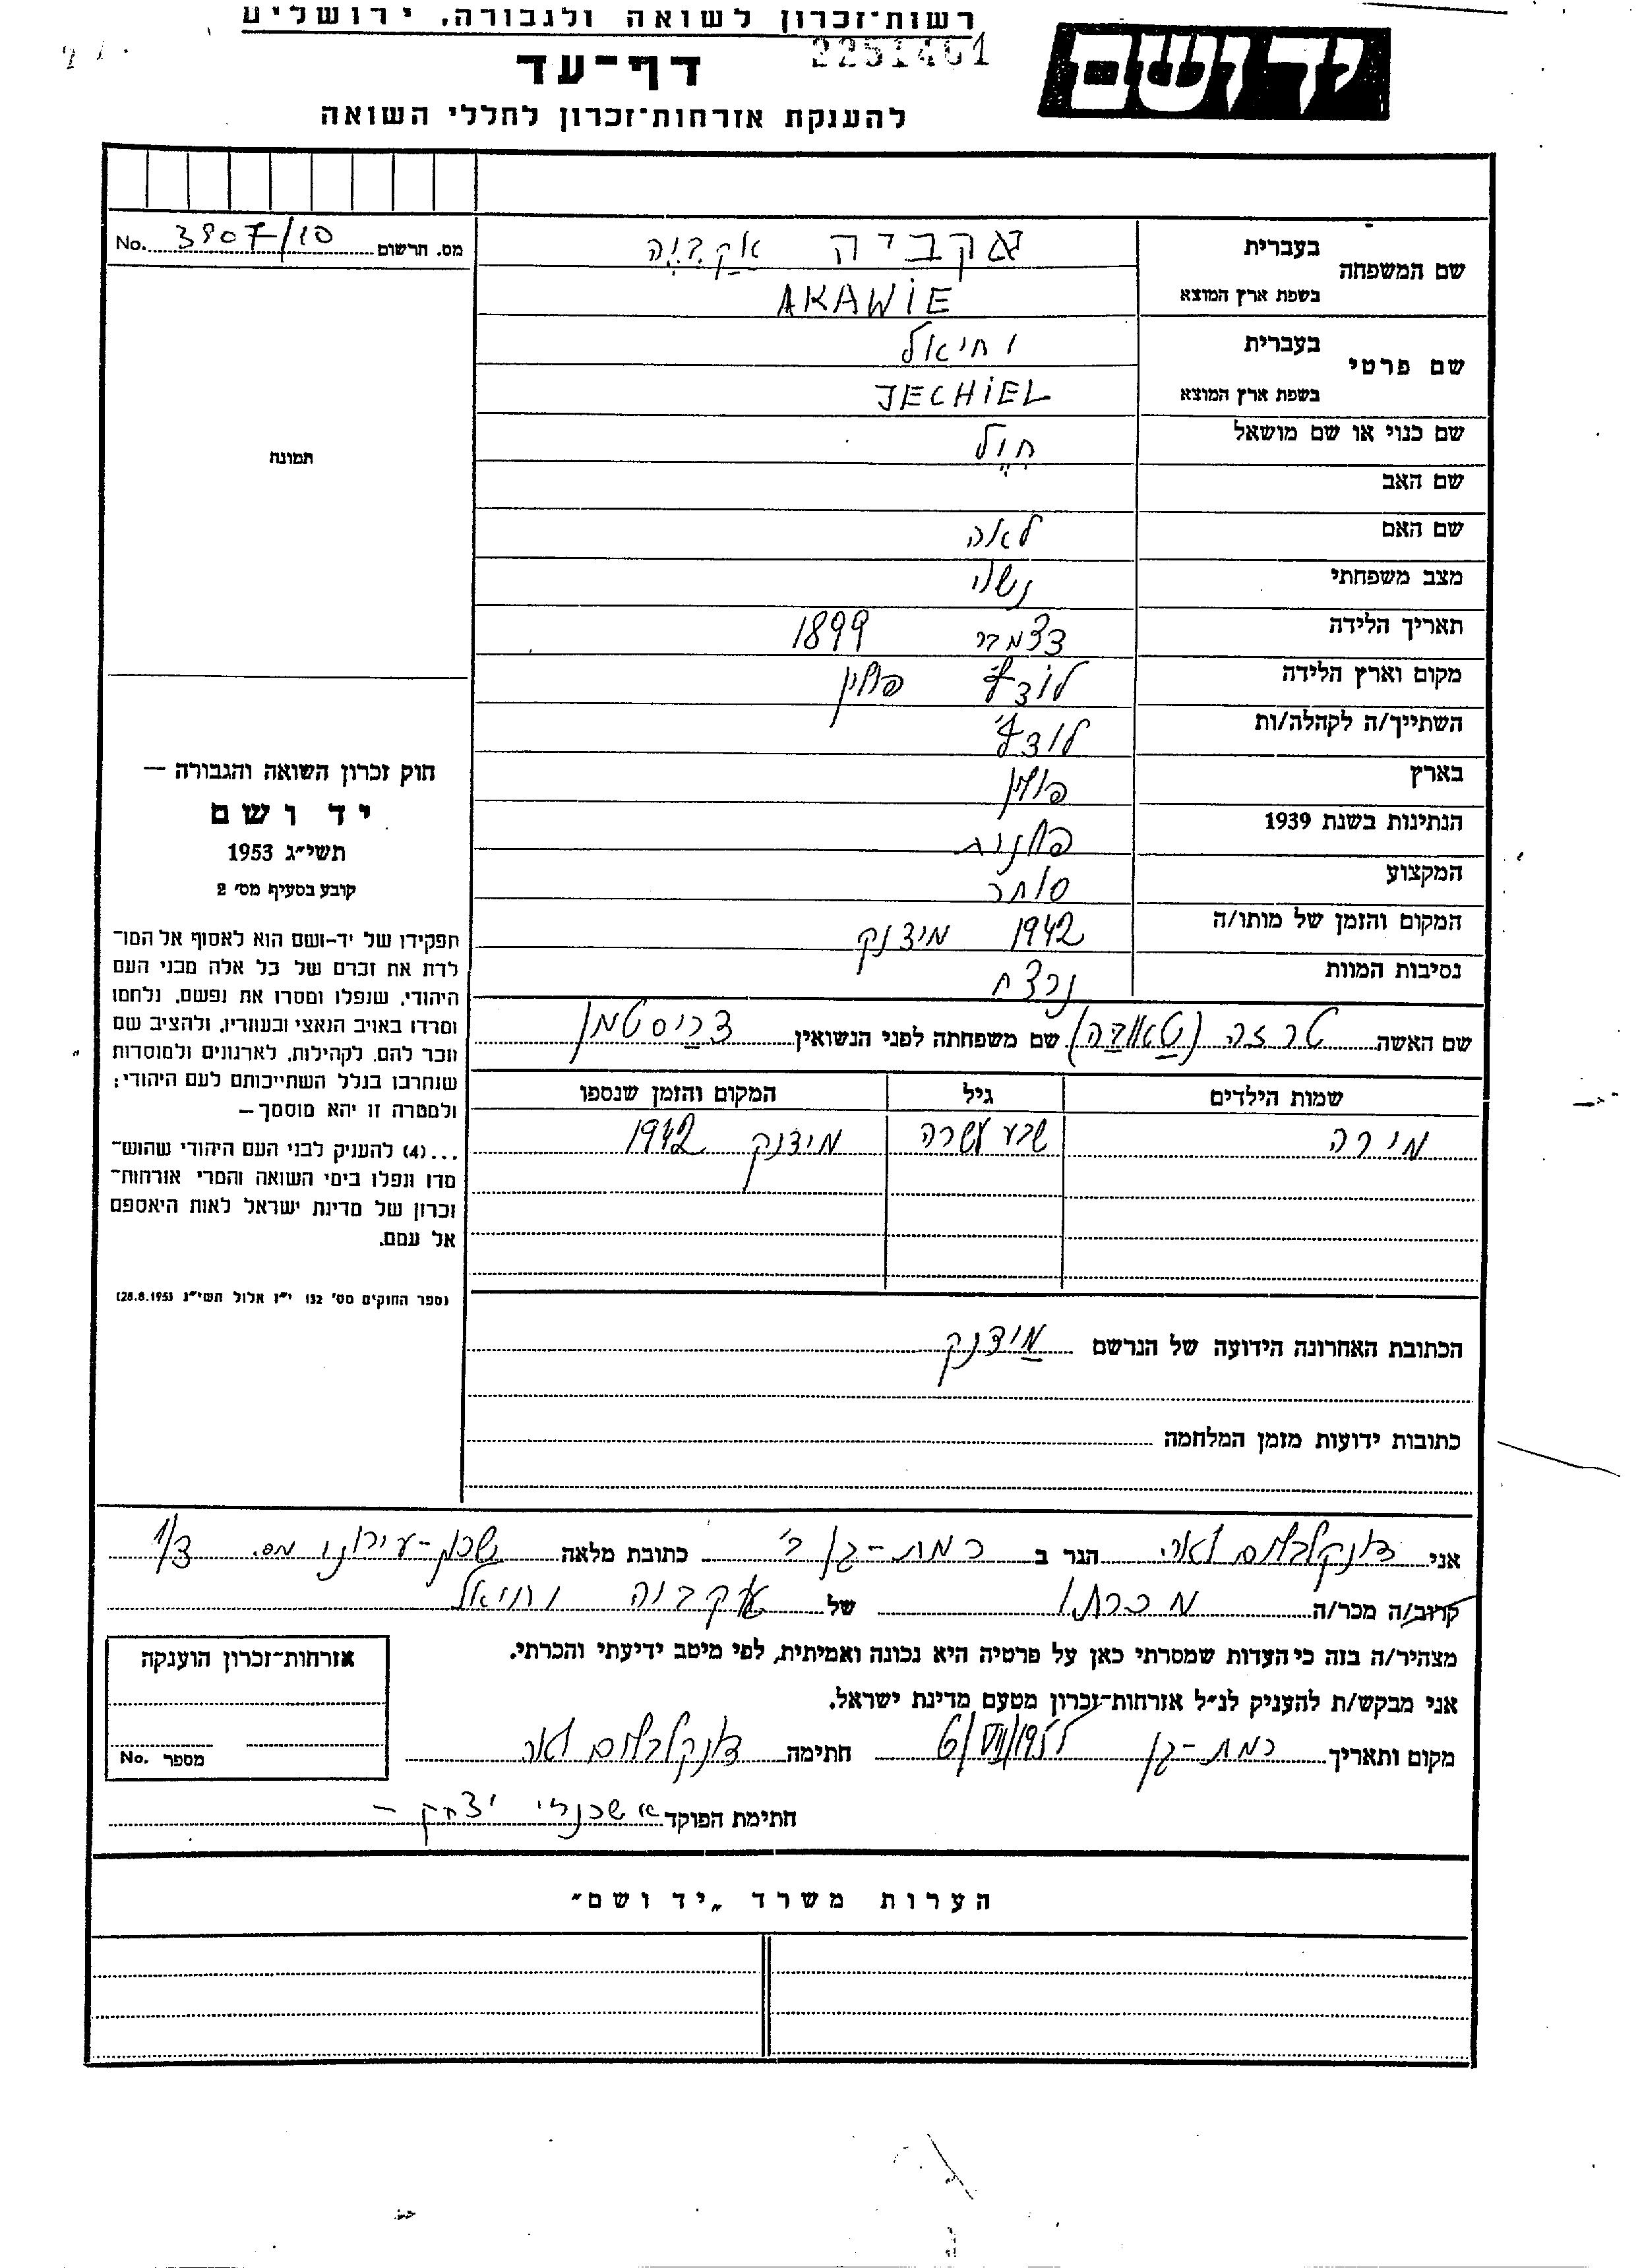 רשות־זכרון לשואה ולגבורה, ירושלים
2251461
דף־עד
להענקת אזרחות־זכרון לחללי השואה
יד ושם
מס. הרשום 3907/10 No.
שם המשפחה
בעברית עקביה אַקַבְיֶה
בשפת ארץ המוצא AKAWIE
שם פרטי
בעברית יחיאל
בשפת ארץ המוצא JECHIEL
שם כנוי או שם מושאל חִיֶל
שם האב
שם האם לאה
מצב משפחתי נשוי
תאריך הלידה דצמבר 1899
מקום וארץ הלידה לודז' פולין
השתייך/ה לקהלה/ות לודז'
בארץ פולין
הנתינות בשנת 1939 פולנית
המקצוע סוחר
המקום והזמן של מותו/ה 1942 מידנק
נסיבות המוות נרצח
שם האשה טרזה שם משפחתה לפני הנשואין
שמות הילדים גיל המקום והזמן שנספו
מירה שבע עשרה מידנק 1942
הכתובת האחרונה הידועה של הנרשם מידנק
כתובות ידועות מזמן המלחמה
תמונה
חוק זכרון השואה והגבורה —
יד ושם
תשי״ג 1953
קובע בסעיף מס׳ 2
תפקידו של יד-ושם הוא לאסוף אל המו־
לדת את זכרם של כל אלה מבני העם
היהודי, שנפלו ומסרו את נפשם, נלחמו
ומרדו באויב הנאצי ובעוזריו, ולהציב שם
וזכר להם, לקהילות, לארגונים ולמוסדות
שנחרבו בגלל השתייכותם לעם היהודי;
ולמטרה זו יהא מוסמך —
...(4) להעניק לבני העם היהודי שהוש־
מדו ונפלו בימי השואה והמרי אזרחות־
זכרון של מדינת ישראל לאות היאספם
אל עמם.
(ספר החוקים מס׳ 132 י״ז אלול תשי״ג 28.8.1953)
אני דונקלבלום לאה הגר ב רמת-גן ב' כתובת מלאה שכון-עירוני מס. 3/1
קרוב/ה מכר/ה מכרתו של עקביה יחיאל
מצהיר/ה בזה כי העדות שמסרתי כאן על פרטיה היא נכונה ואמיתית, לפי מיטב ידיעתי והכרתי.
אני מבקש/ת להעניק לנ״ל אזרחות־זכרון מטעם מדינת ישראל.
מקום ותאריך רמת-גן 6/VII/1955 חתימה דונקלבלום לאה
חתימת הפוקד אשכנזי יצחק —
אזרחות־זכרון הוענקה
מספר No.
הערות משרד „יד ושם״